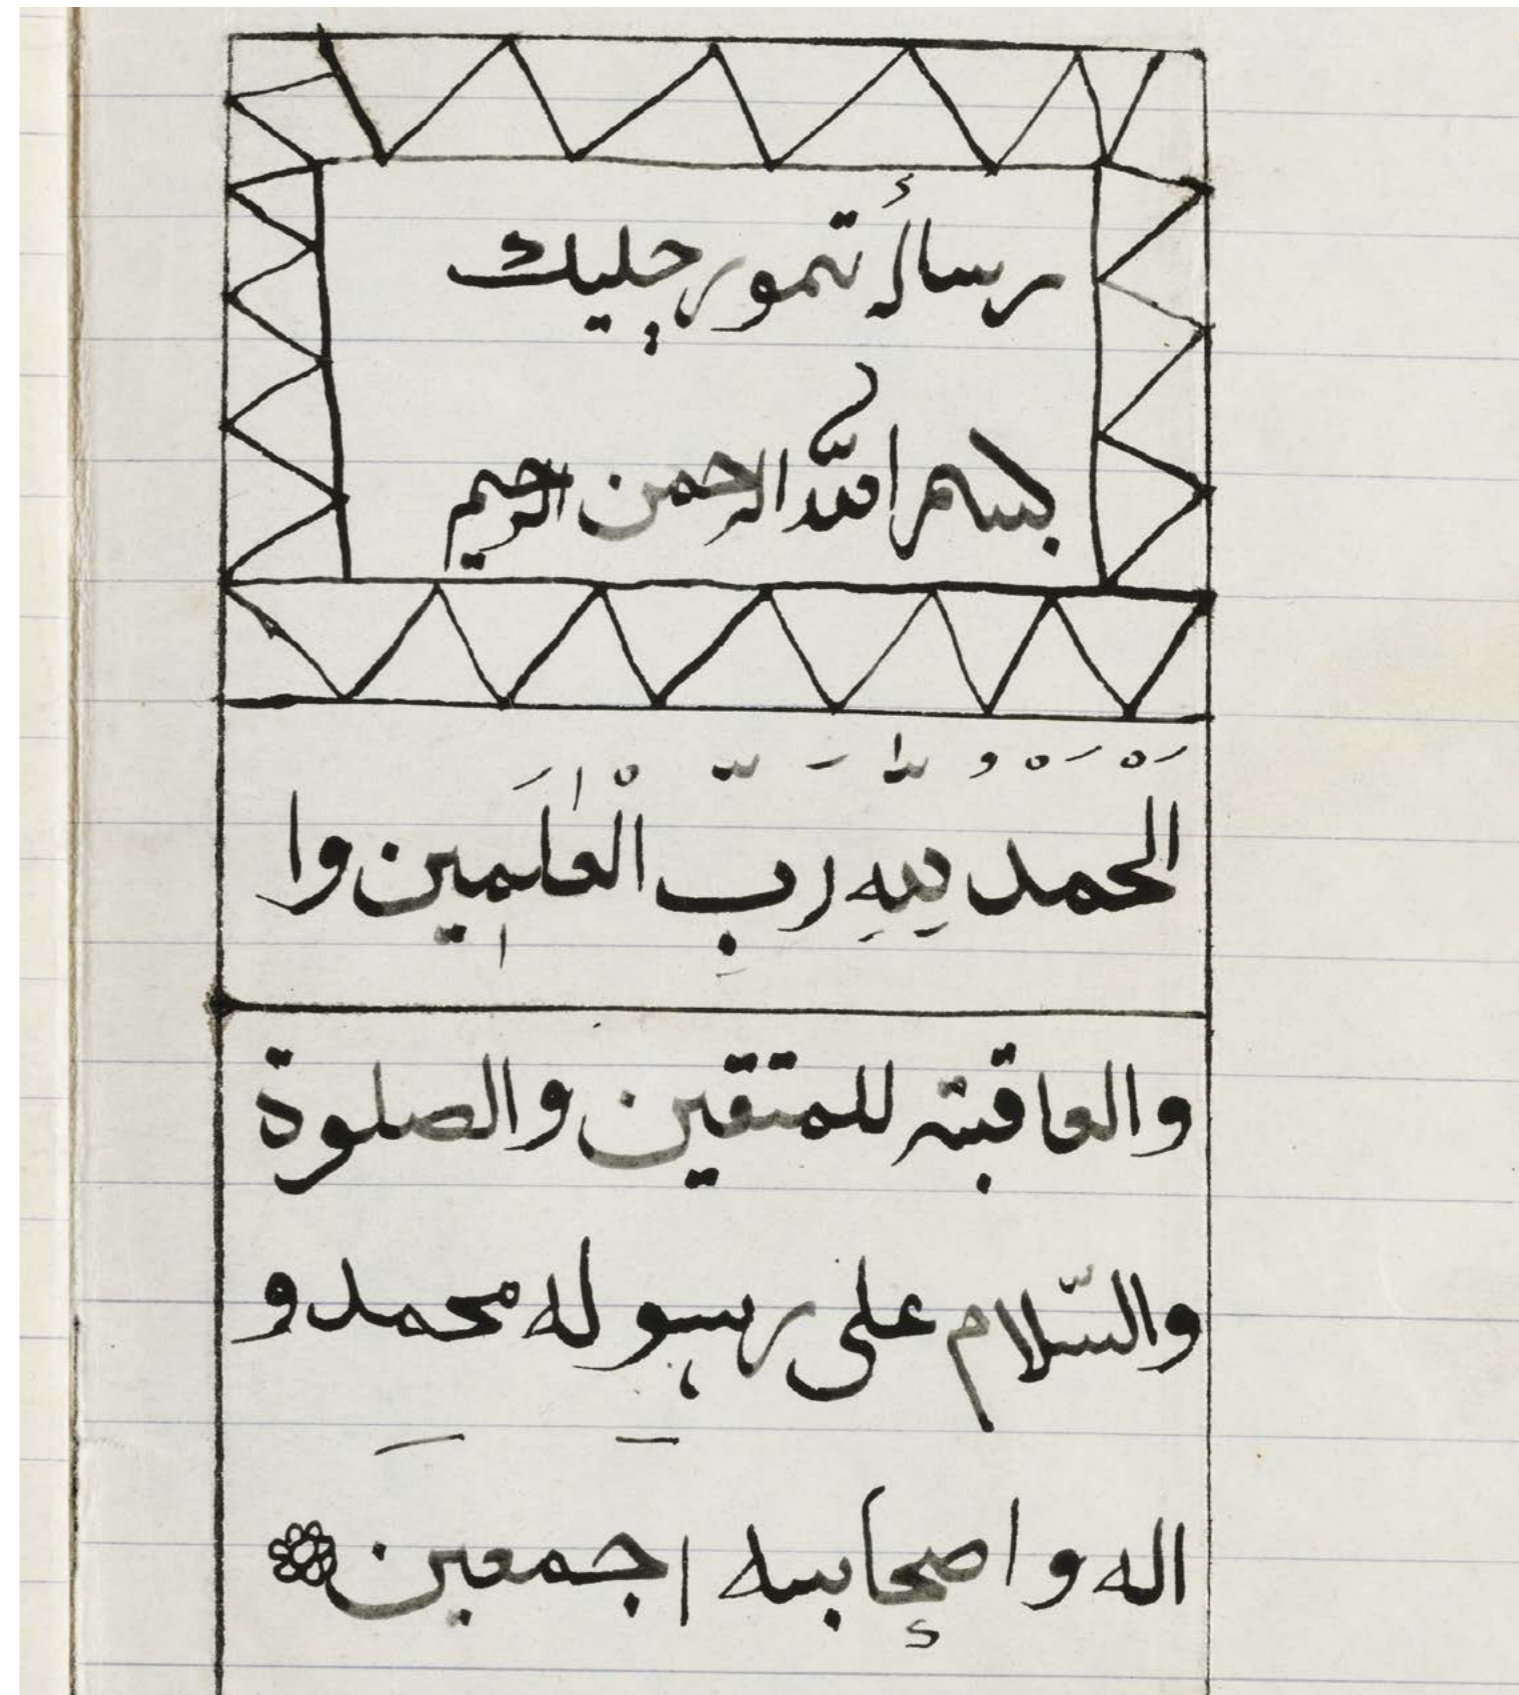 رسالۀ تيمور جليك
بسم الله الرحمن الرحيم
اَلْحَمْدُ لِلّٰهِ رَبِّ الْعٰلَمِين وا
والعاقبة للمتقين والصلوة
والسّلام على رسوله محمد و
اله واصحابه اجمعين